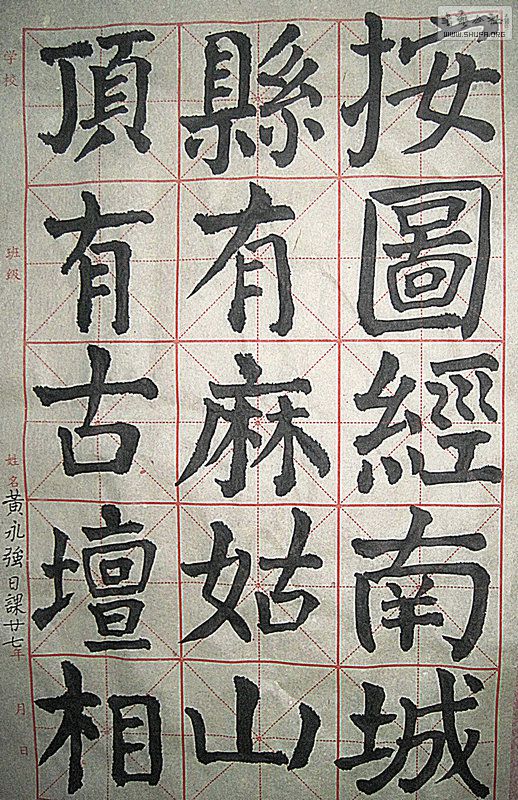 按圖經南城
縣有麻姑山
頂有古壇相
学校
班级
姓名
黃永強日課廿七年
月
日
WWW.SHUFA.ORG